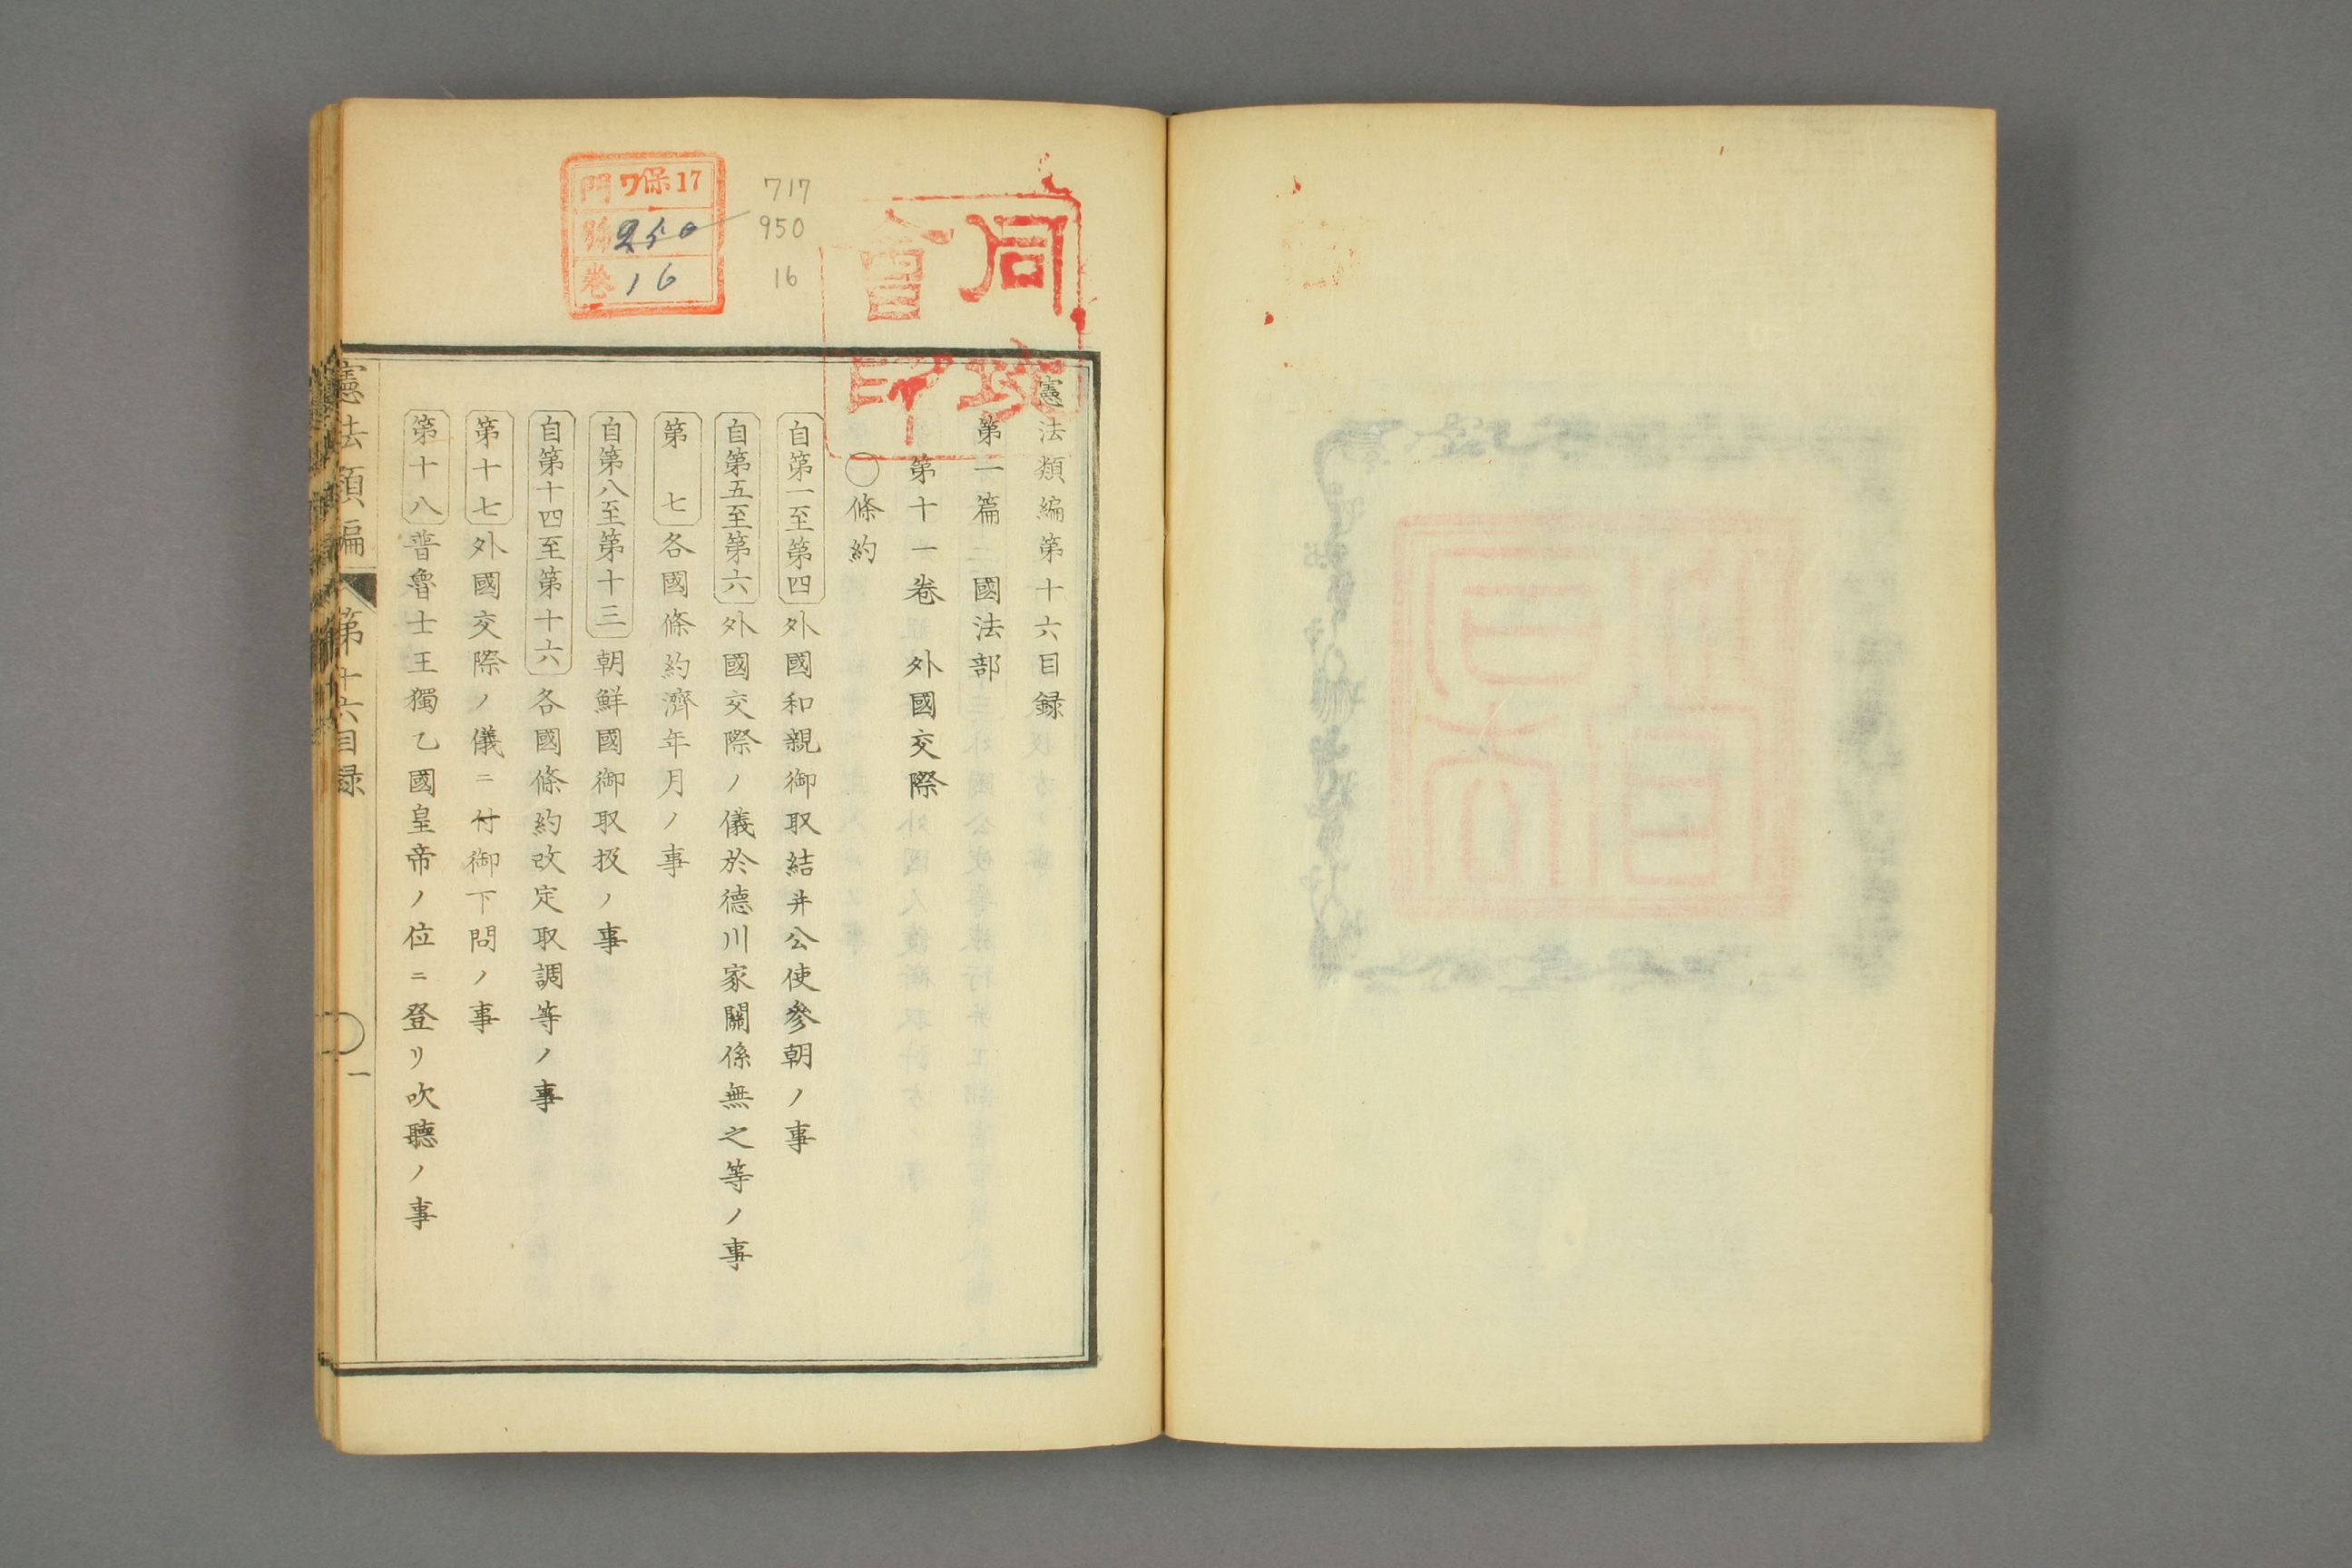 憲法類編第十六目録
第一篇 國法部
第十一卷 外國交際
〇條約
自第一至第四 外國和親御取結并公使參朝ノ事
自第五至第六 外國交際ノ儀於德川家關係無之等ノ事
第七 各國條約濟年月ノ事
自第八至第十三 朝鮮國御取扱ノ事
自第十四至第十六 各國條約改定取調等ノ事
第十七 外國交際ノ儀ニ付御下問ノ事
第十八 普魯士王獨乙國皇帝ノ位ニ登リ吹聽ノ事
憲法類編 第十六目録 一
同攻會印
門 ワ保17
號 250
卷 16
717
950
16